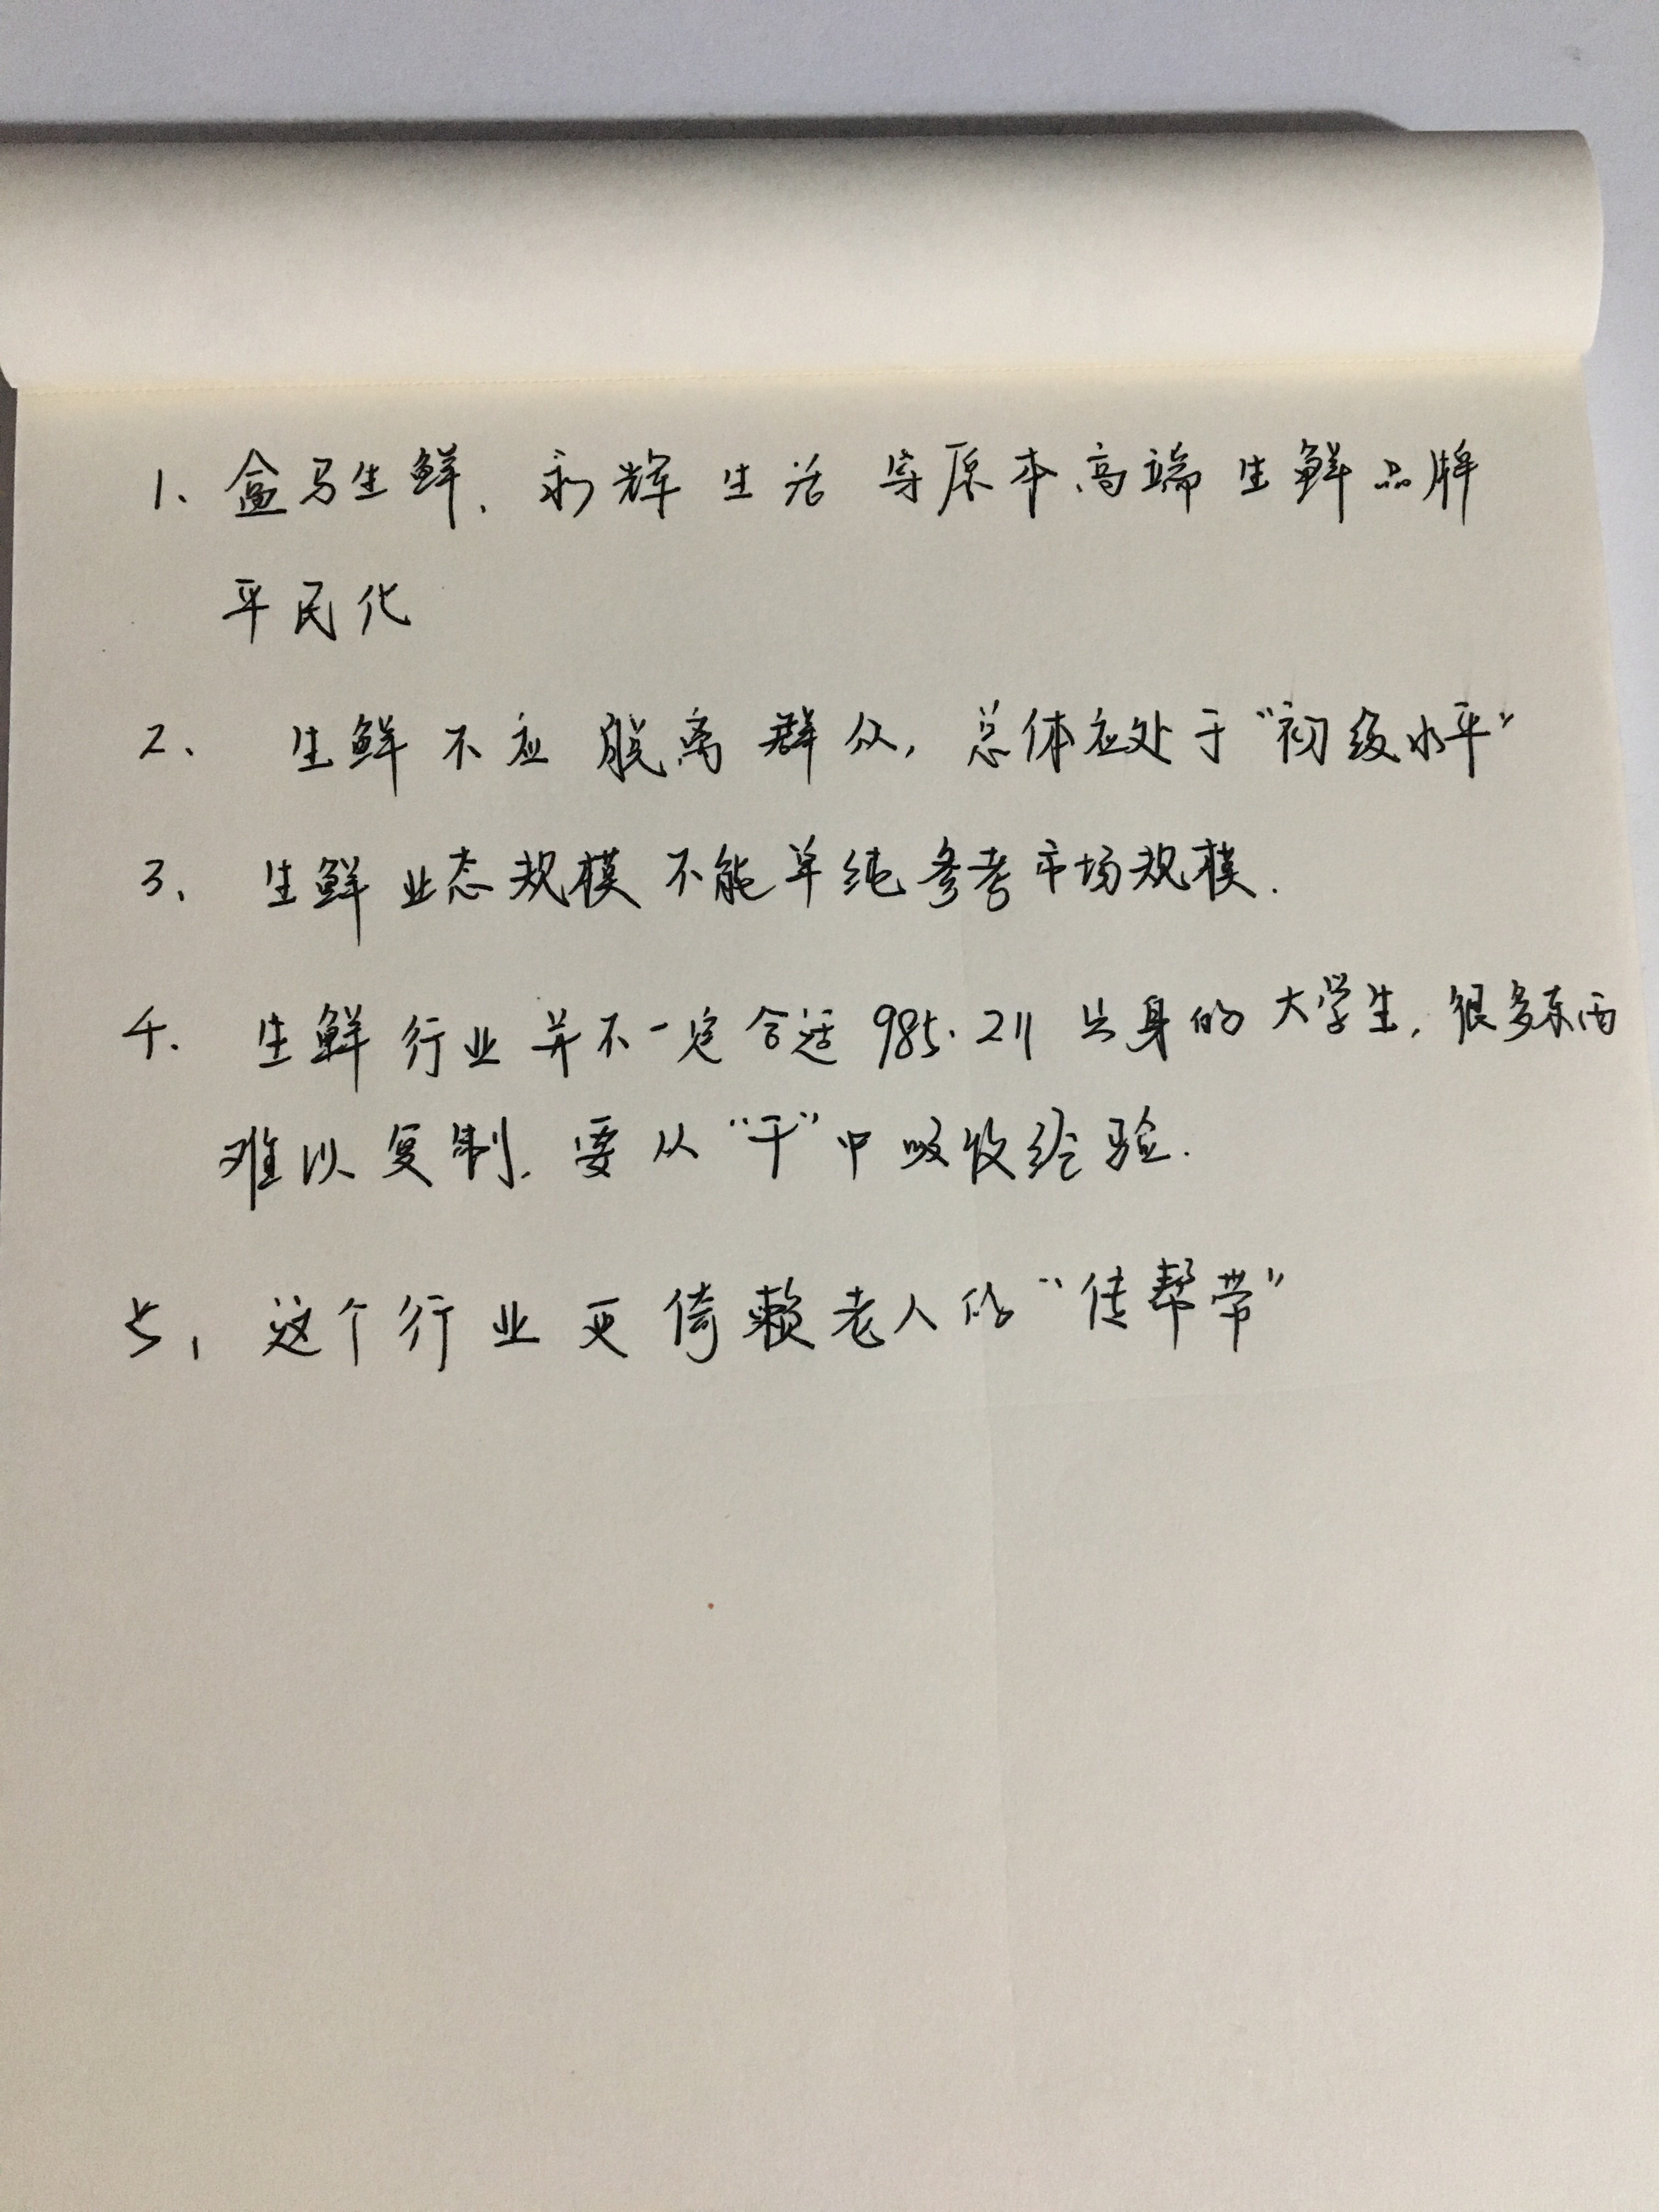 1、盒马生鲜、永辉生活等原本高端生鲜品牌
平民化
2、生鲜不应脱离群众,总体应处于“初级水平”
3、生鲜业态规模不能单纯参考市场规模.
4.生鲜行业并不一定合适985.211出身的大学生,很多东西
难以复制.要从“干”中吸收经验.
5、这个行业更倚赖老人的“传帮带”